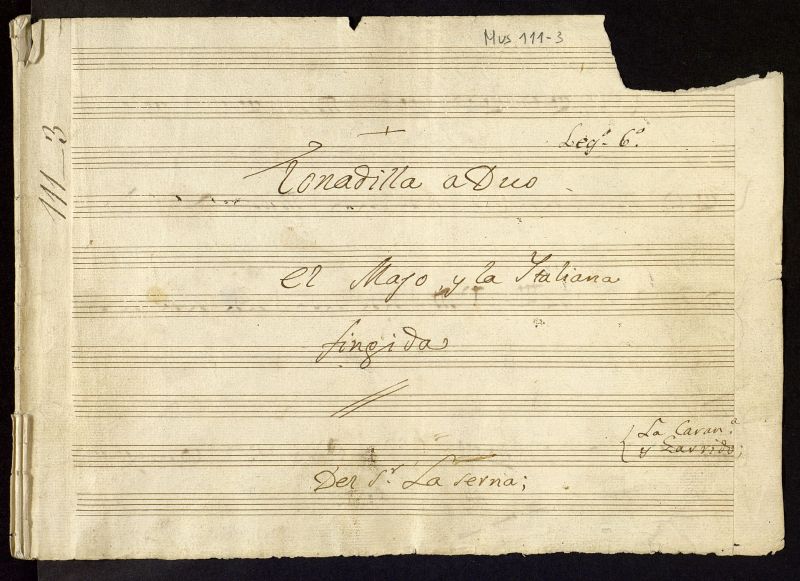 Mus 111-3
111-3
Leg.º 6.º
Tonadilla a Duo
el Majo y la Italiana
fingida
La Caran.ª
y Garrido;
Del S.r La serna;